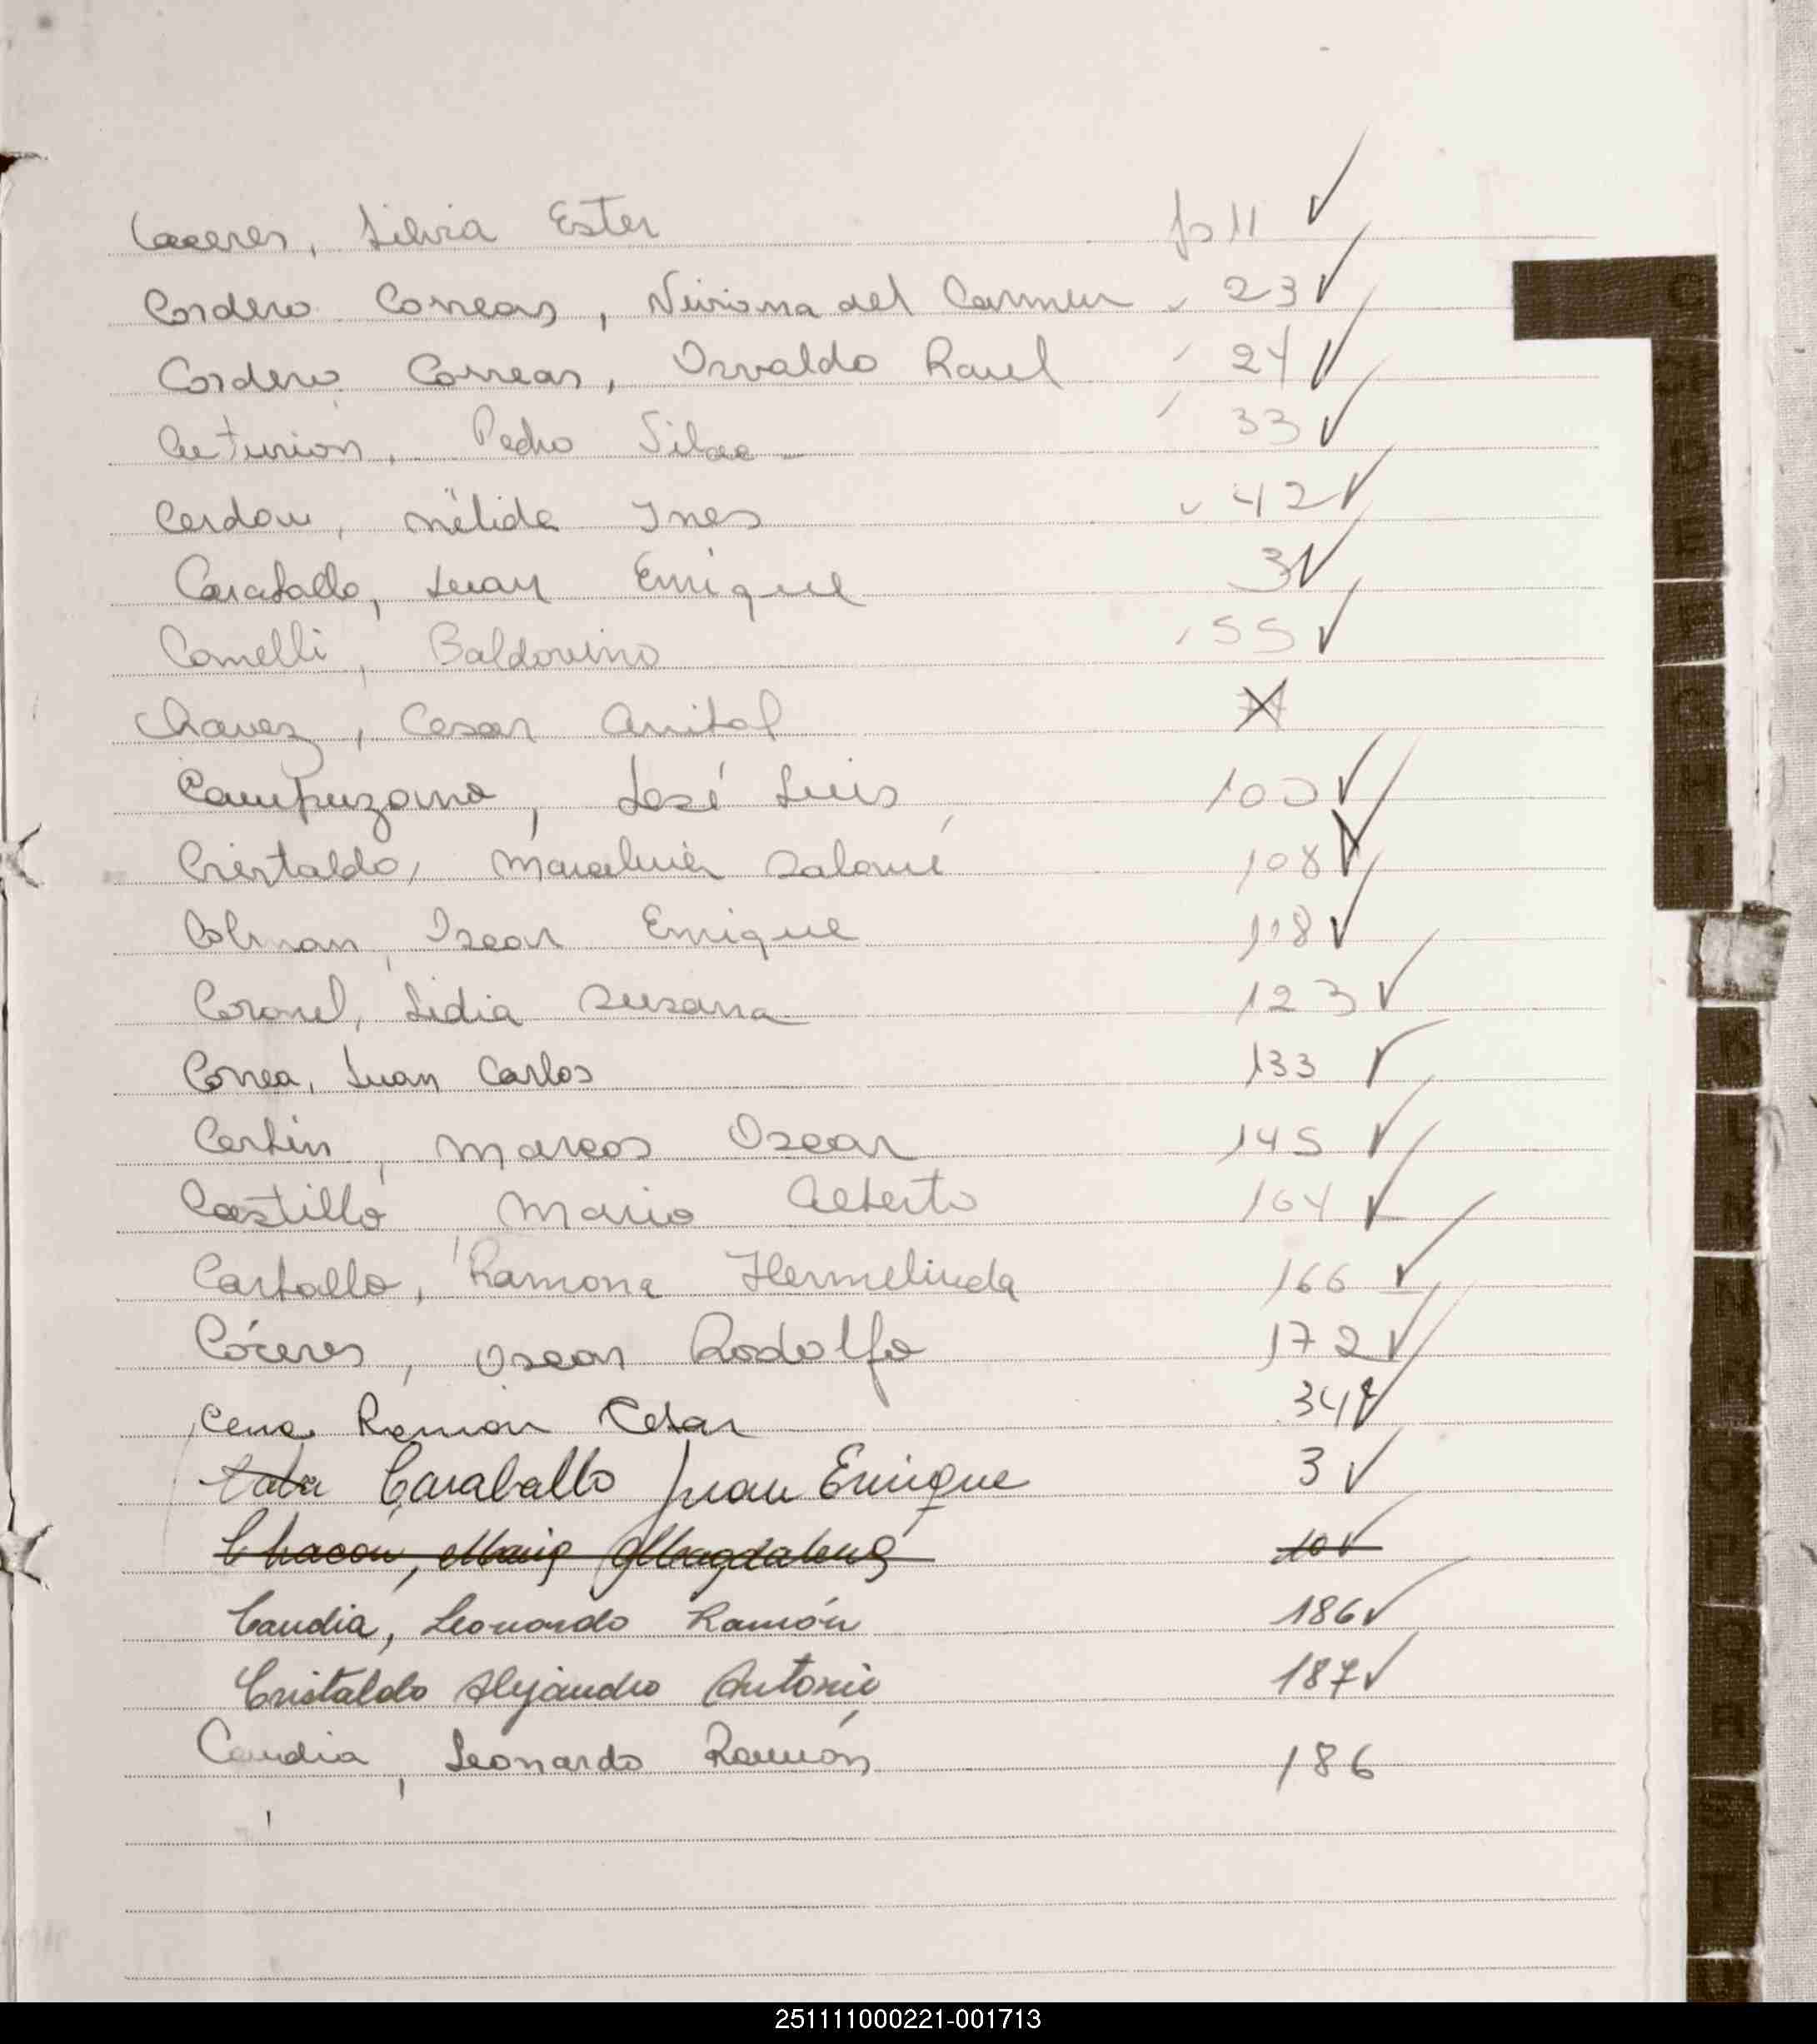 Caceres, Silvia Ester fs 11 ✓
Cordero Correas, Viviana del Carmen " 23 ✓
Cordero Correas, Osvaldo Raul " 24 ✓
Centurion, Pedro 33 ✓
Cardou, Nélida Ines " 42 ✓
Caraballo, Juan Enrique 3 ✓
Comelli, Baldovino " 55 ✓
Chavez, Cesar Anibal
Campuzano, José Luis 100 ✓
Cristaldo, Salomé 108 ✓
Colman, Oscar Enrique 118 ✓
Coronel, Lidia Susana 123 ✓
Correa, Juan Carlos 133 ✓
Marcos Oscar 145 ✓
Castillo, Mario Alberto 164 ✓
Carballo, Ramona Hermelinda 166 ✓
Cáceres, Oscar Rodolfo 172 ✓
Cena Ramón Cesar 34 ✓
Caraballo Juan Enrique 3 ✓
Chacon, Maria Magdalena 10 ✓
Candia, Leonardo Ramón 186 ✓
Cristaldo Alejandro Antonio 187 ✓
Candia, Leonardo Ramón 186
251111000221-001713